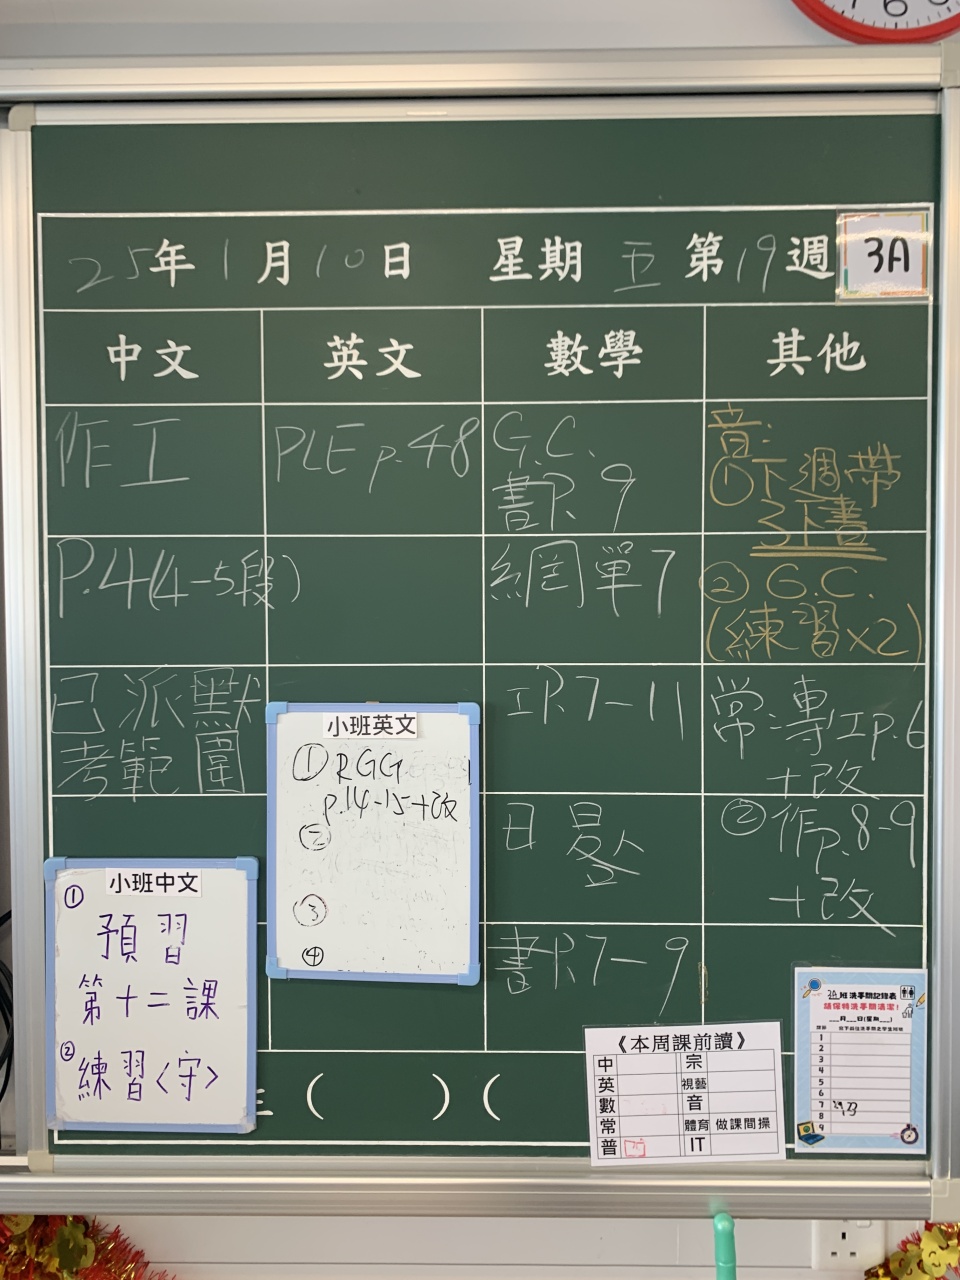 25年1月10日 星期五 第19週
3A
中文
作工
P.4(4-5段)
已派默
考範圍
小班中文
① 預習
第十二課
② 練習〈守〉
英文
PLE p.48
小班英文
① RGG
p.14-15+改
②
③
④
數學
G.C.
書P.9
網單7
工P.7-11
書P.7-9
其他
音:
①下週帶
3下書
② G.C.
(練習x2)
常:專工p.6
+改
②作p.8-9
+改
( ) (
《本周課前讀》
中 宗
英 視藝
數 音
常 體育 做課間操
普 IT
3A班洗手間記錄表
請保持洗手間清潔!
___月___日(星期___)
1
2
3
4
5
6
7
8
9